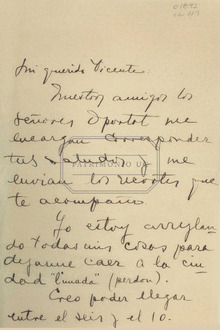 Mi querido Vicente
Nuestros amigos los
señores Oportot me
encargan corresponder
tus saludos y me
envian los recortes que
te acompaño.
Yo estoy arreglan
do todas mis cosas para
dejarme caer a la ciu
dad "limada" (perdon).
Creo poder llegar
entre el seis y el 10.
PATRIMONIO